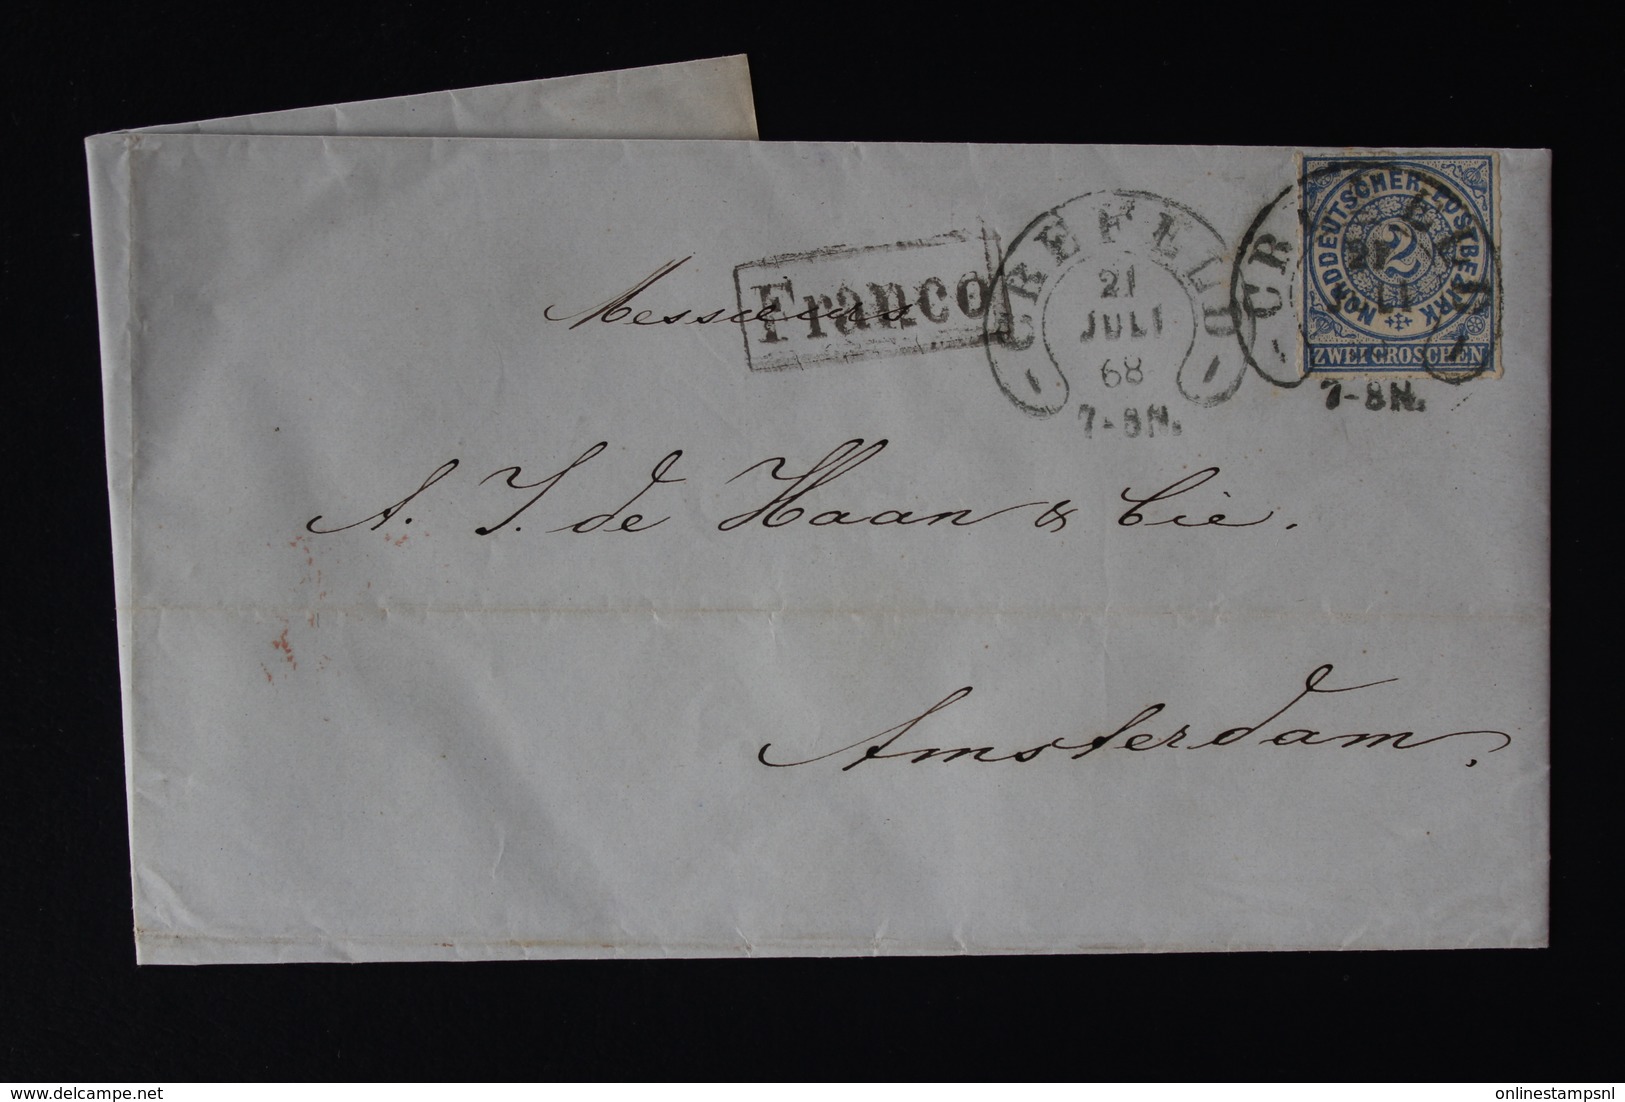 Messieurs
Franco
CREFELD
21
JULI
68
7-8N.
CREFELD
21
JULI
7-8N.
NORDDEUTSCHER POSTBEZIRK
2
ZWEI GROSCHEN
A. J. de Haan & Cie.
Amsterdam.
delcampe.net
onlinestampsnl